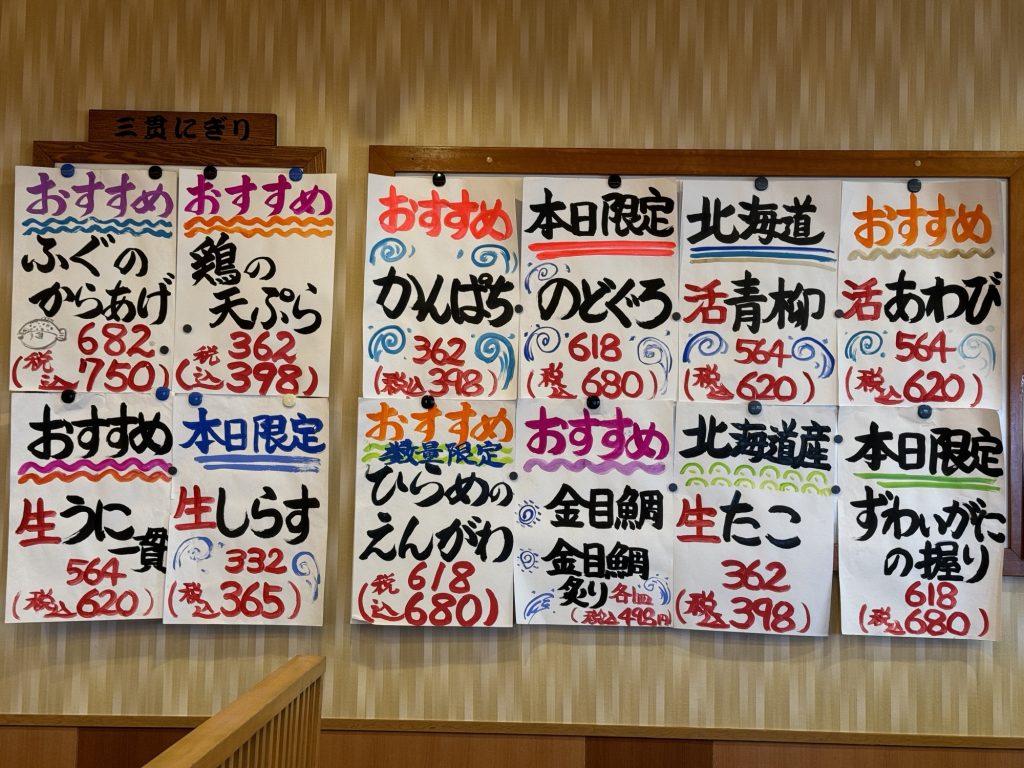 三貫にぎり
おすすめ
ふぐの
からあげ
682
(税込750)
おすすめ
鶏の
天ぷら
362
(税込398)
おすすめ
生うに
一貫
564
(税込620)
本日限定
生しらす
332
(税込365)
おすすめ
かんぱち
362
(税込398)
本日限定
のどぐろ
618
(税込680)
北海道
活青柳
564
(税込620)
おすすめ
活あわび
564
(税込620)
おすすめ
数量限定
ひらめの
えんがわ
618
(税込680)
おすすめ
金目鯛
金目鯛
炙り各皿
(税込498円)
北海道産
生たこ
362
(税込398)
本日限定
ずわいがに
の握り
618
(税込680)